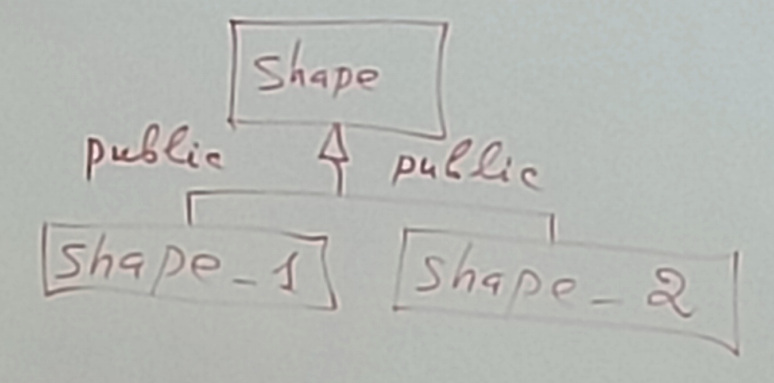 Shape
public public
Shape_1 Shape_2